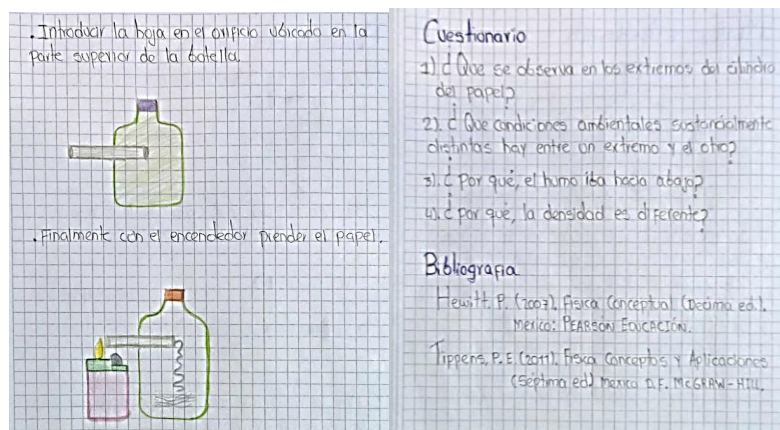 . Introducir la hoja en el orificio ubicado en la
parte superior de la botella
. Finalmente con el encendedor prender el papel.
Cuestionario
1) ¿ Que se observa en los extremos del cilindro
del papel?
2). ¿ Que condiciones ambientales sustancialmente
distintas hay entre un extremo y el otro?
3). ¿ Por qué, el humo iba hacia abajo?
4). ¿ por qué, la densidad es diferente?
Bibliografia
Hewitt. P. (2007). Fisica Conceptual (Decima ed.).
Mexico: PEARSON EDUCACIÓN.
Tippens, P.E (2011). Fisica Conceptos y Aplicaciones
(Septima ed) mexico D.F. McGRAW-HILL.